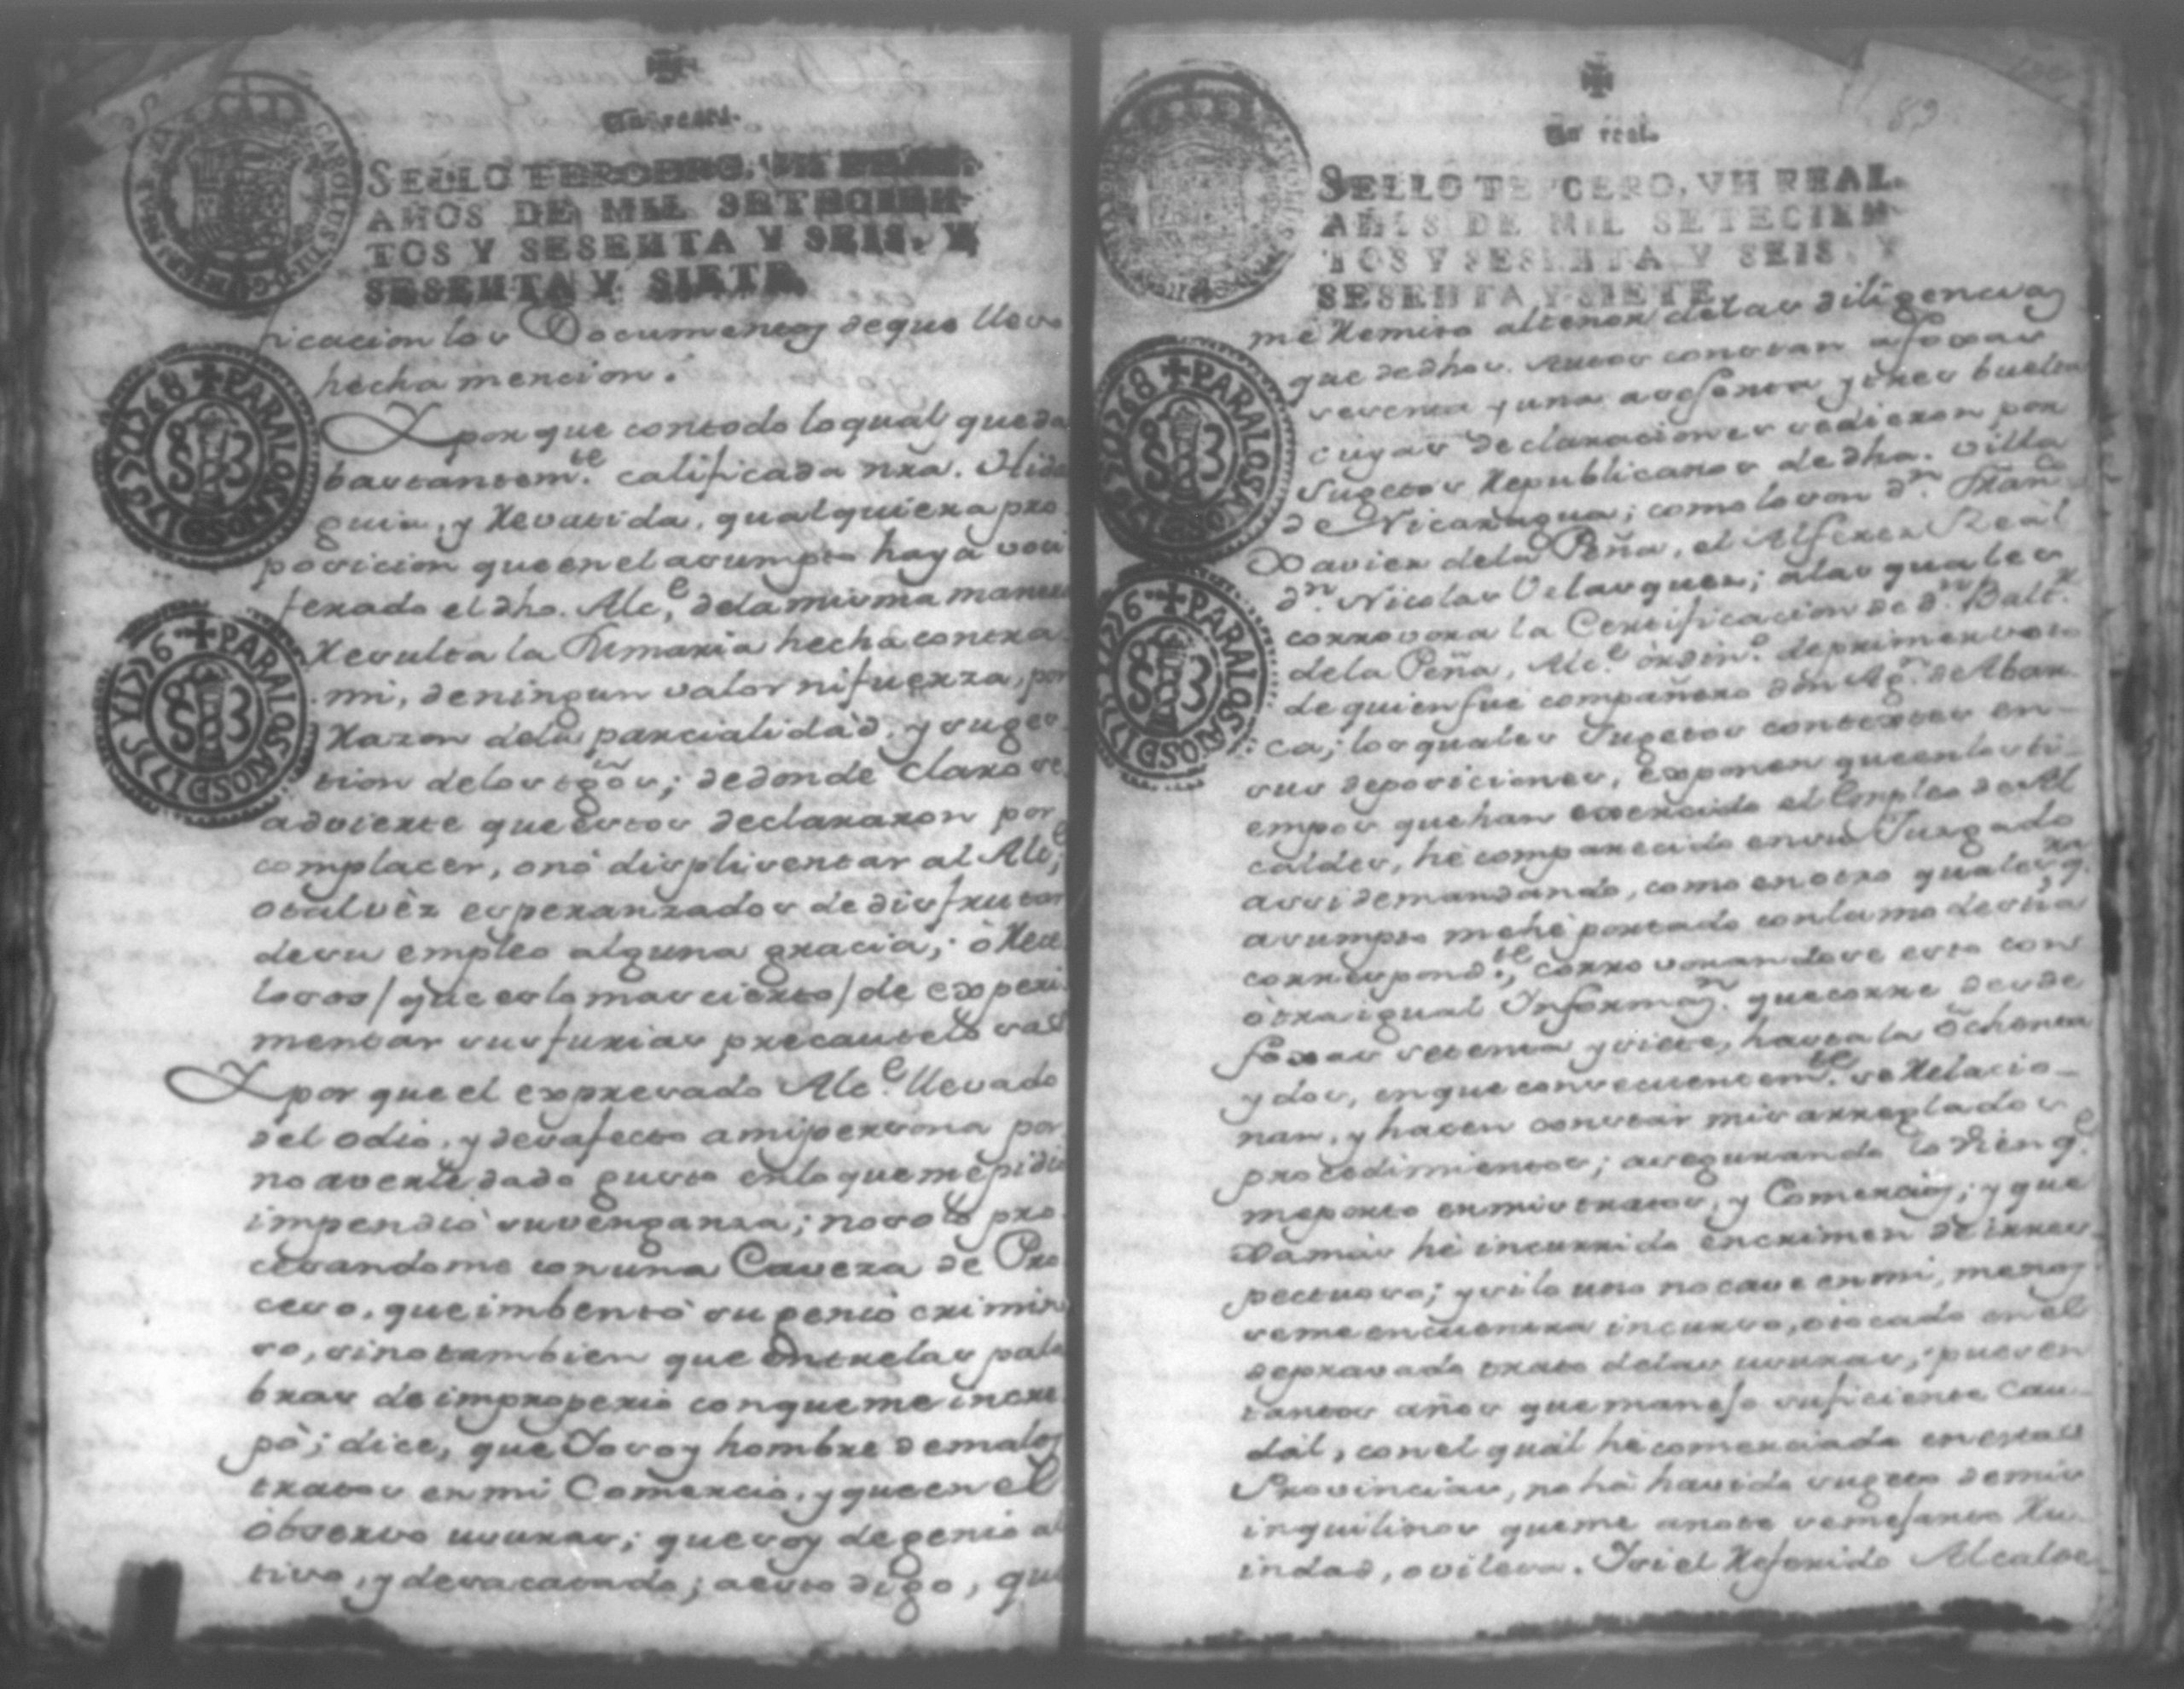 Un real.
SELLO TERCERO, VN REAL.
AÑOS DE MIL SETECIEN-
TOS Y SESENTA Y SEIS, Y
SESENTA Y SIETE
CAROLUS III D G
PARALOSAÑOSDI7
PARALOSAÑOSDI7
ficacion los Documentos de que llevo
hecha mencion.
Y por que con todo lo qual queda
bastantem.te calificada nra. Hidal
guia, y Revatida, qualquiera pro
posicion que en el asumpto haya voci
ferado el dho. Alc.e, dela misma manera
Resulta la Sumaria hecha contra
mi, de ningun valor ni fuerza, por
Razon dela parcialidad, y suges
tion delos tgôs; de donde claro se
advierte que estos declararon por
complacer, o nó displisentar al Alc.e,
o tal vèz esperanzados de disfrutar
de su empleo alguna gracia; ò Rece
losos / que es lo mas cierto / de experi
mentar sus furias precautelosas
Y por que el expresado Alc.e llevado
del odio, y desafecto a mi persona por
no averle dado gusto en lo que me pidio
impendió su venganza; no solo pro
cesandome con una Caveza de Pro
ceso, que imbentó su genio crimino
so, sino tambien que entre las pala
bras de improperio con que me incre
pò; dice, que Yo soy hombre de malos
tratos en mi Comercio, y que en el
observo usuras; que soy de genio al
tivo, y desacatado; a esto digo, que
89
Un real.
SELLO TERCERO, VN REAL.
AÑOS DE MIL SETECIEN-
TOS Y SESENTA Y SEIS Y
SESENTA Y SIETE
PARALOSAÑOSDI7
PARALOSAÑOSDI7
me Remito al tenor delas diligencias
que de dhos. Autos constan a foxas
sesenta y una a sesenta y tres buelta
cuyas declaraciones se dieron por
Sugetos Republicanos de dha. Villa
de Nicaragua; como lo son d.n Fran.co
Xavier dela Peña, el Alferez Reàl
d.n Nicolas Velasquez; a las quales
corrovora la Certificacion de d.n Balt.r
dela Peña, Alc.e òrdin.o de primer voto
de quien fué compañero don Ag.n de Abar
ca; los quales Sugetos contextes en
sus deposiciones, exponen que en los ti-
empos que han exercido el Empleo de Al
caldes, hé comparecido en su Juzgado
assi demandando, como en otro qualesq.ra
asumpto me hé portado con la modestia
correspond.te, corrovorandose esto con
òtra igual Informaz.n que corre desde
foxas setenta y siete, hasta la òchenta
y dos, en que consecuentem.te se Relacio-
nan, y hacen constar mis arreglados
procedimientos; asegurando lo vien q.e
me porto en mis tratos, y Comercios; y que
Xamàs hé incurrido en crimen de irres-
pectuoso; y si lo uno no cave en mi, menos
se me encuentra incurso, o tocado en el
depravado trato delas usuras; pues en
tantos años que manejo suficiente Cau-
dàl, con el quàl hé comerciado en estas
Provincias, no hà havido sugeto de mis
inquilinos que me anote semejante Ru-
indad, o vileza. Y si el Referido Alcalde